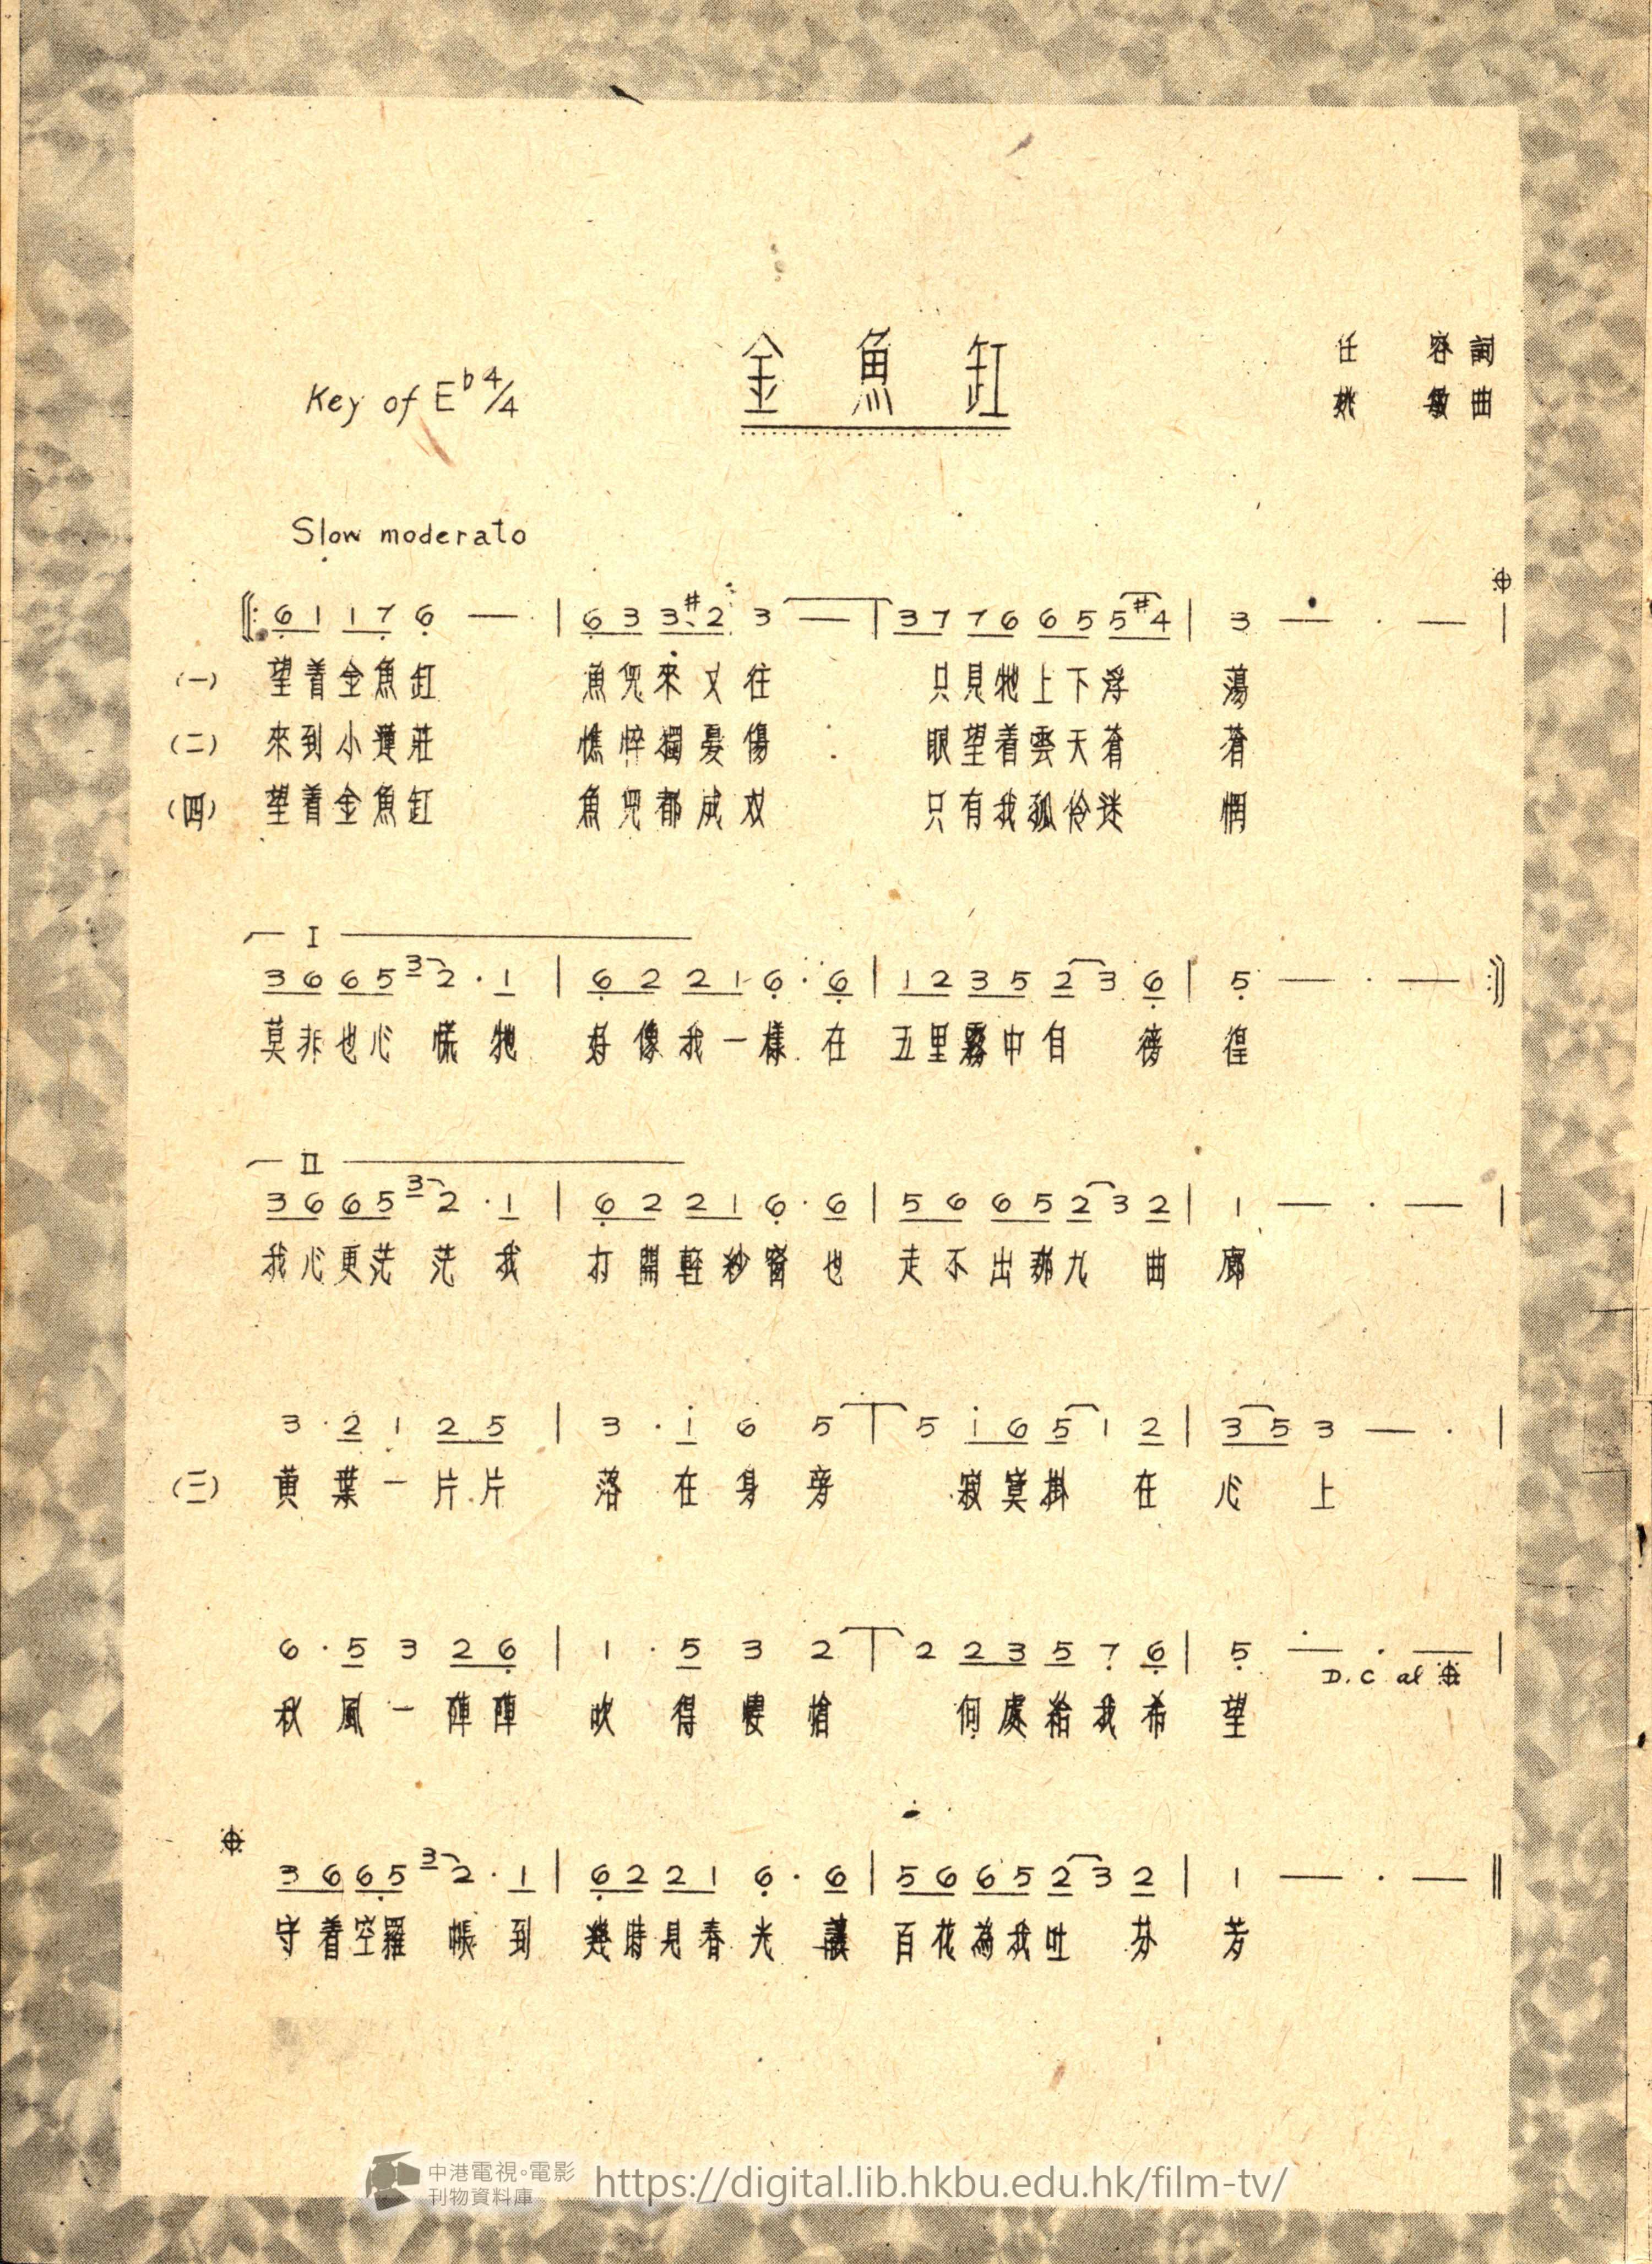 金魚缸
任容詞
姚敏曲
Key of E♭ 4/4
Slow moderato
6 1 1 7 6 — · | 6 3 3 #2 3 — | 3 7 7 6 6 5 5 #4 | 3 — · — |
(一) 望着金魚缸 魚兒來又往 只見牠上下浮蕩
(二) 來到小蓮莊 憔悴獨憂傷 眼望着雲天蒼蒼
(四) 望着金魚缸 魚兒都成双 只有我孤伶迷惘
I
3 6 6 5 3 2 · 1 | 6 2 2 1 6 · 6 | 1 2 3 5 2 3 6 | 5 — · — :|
莫非也心慌牠 好像我一樣在 五里霧中自徬徨
II
3 6 6 5 3 2 · 1 | 6 2 2 1 6 · 6 | 5 6 6 5 2 3 2 | 1 — · — |
我心更茫茫我 打開輕紗窗也 走不出那九曲廊
3 · 2 1 2 5 | 3 · i 6 5 | 5 i 6 5 1 2 | 3 5 3 — · |
(三) 黄葉一片片 落在身旁 寂寞掛在心上
6 · 5 3 2 6 | 1 · 5 3 2 | 2 2 3 5 7 6 | 5 — · — |
D.C al
秋風一陣陣 吹得悽愴 何處給我希望
3 6 6 5 3 2 · 1 | 6 2 2 1 6 · 6 | 5 6 6 5 2 3 2 | 1 — · — ||
守着空羅帳到 幾時見春光讓 百花為我吐芬芳
中港電視。電影
刊物資料庫
https://digital.lib.hkbu.edu.hk/film-tv/